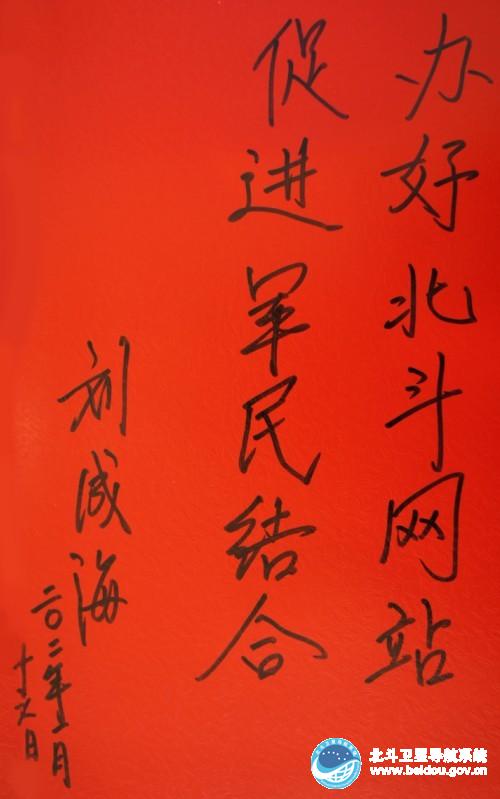 办好北斗网站
促进军民结合
刘成海
二〇一二年月
十六日
北斗卫星导航系统
www.beidou.gov.cn